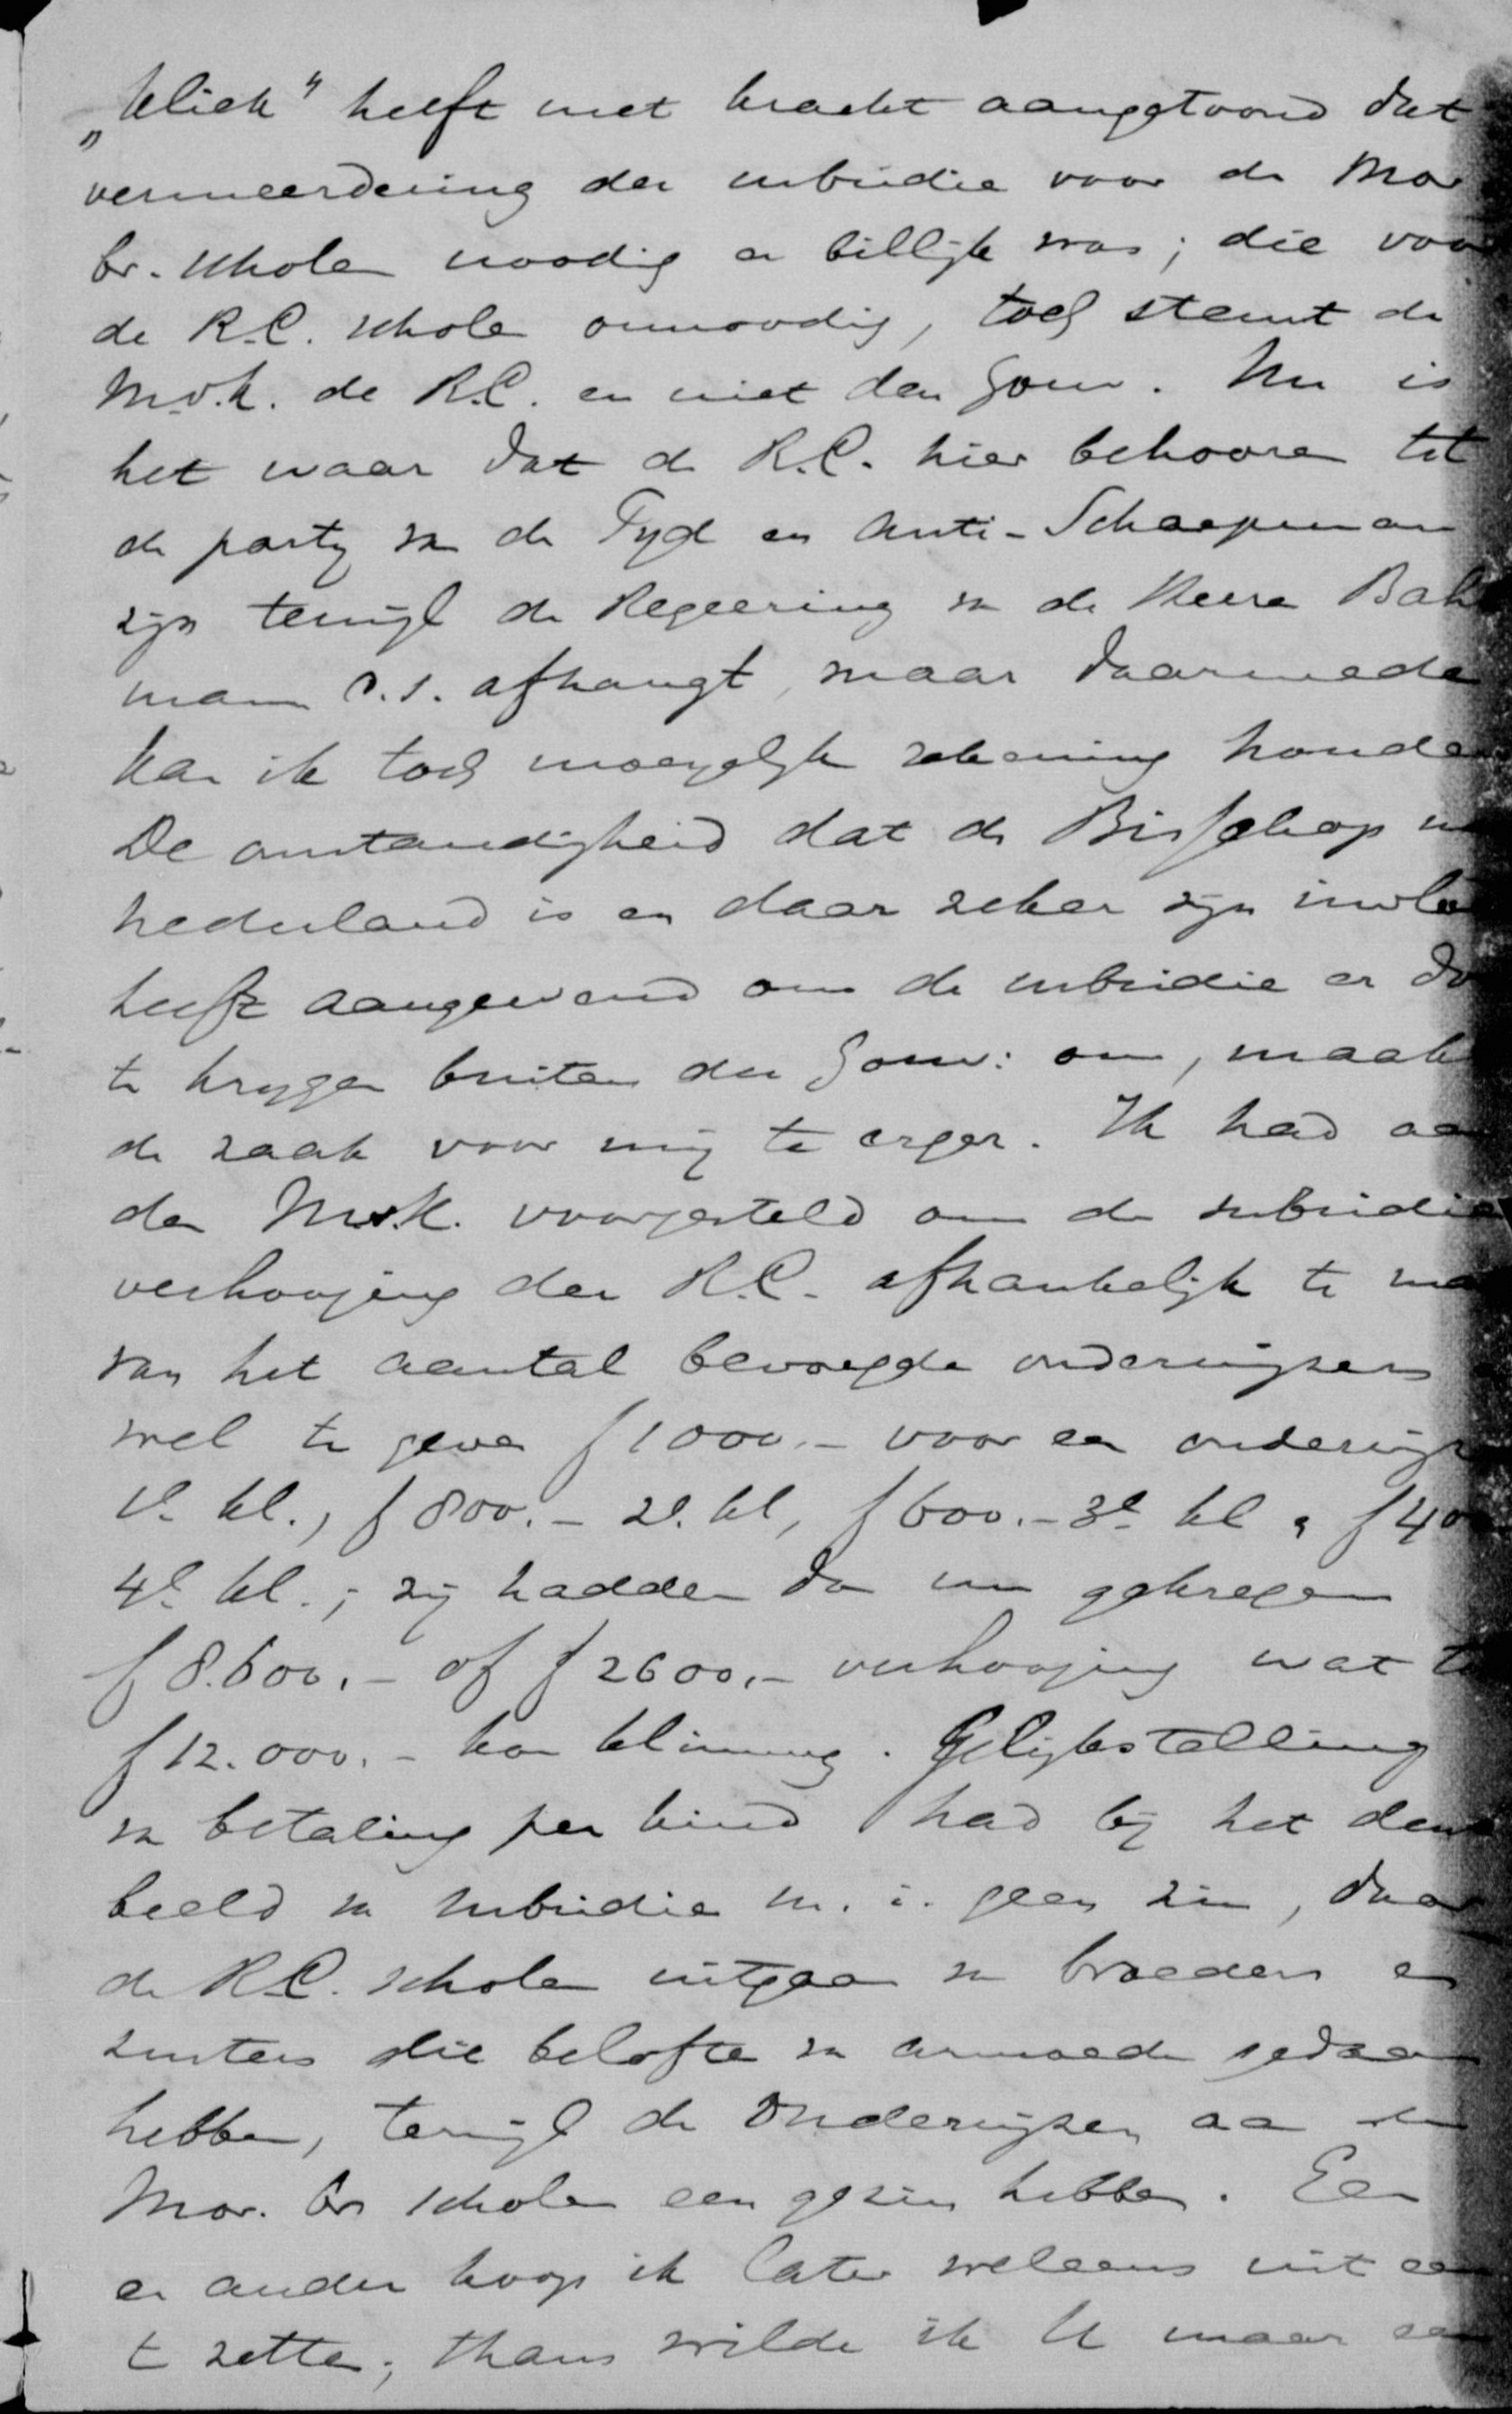 „kliek" heeft met kracht aangetoond dat
vermeerdering der subsidie voor de Mor
br. scholen noodig en billijk was; die voor
de R.C. scholen onnoodig, toch stemt de
M.v.K. de R.C. en niet den Gouv. Nu is
het waar dat de R.C. hier behooren tot
de party van de Tyd en Anti-Schaepman
zijn terwijl de Regeering van de Heeren Bah
man c.s. afhangt, maar daarmede
kan ik toch moeyelyk rekening houden
De omstandigheid dat de Bisschop in
Nederland is en daar zeker zijn invloe
heeft aangewend om de subsidie er do
te krygen buiten den Gouv: om, maakt
de zaak voor mij te erger. Ik had aa
den M.v.K. voorgesteld om de subsidie
verhooging der R.C. afhankelijk te ma
van het aantal bevoegde onderwijzers
wel te geven f 1000.- voor een onderwijz
1e kl., f 800.- 2e kl, f 600.- 3e kl & f 400
4e kl.; zij hadden dan nu gekregen
f 8.600.- of f 2600.- verhooging wat to
f 12.000.- kon klimmen. Gelijkstelling
van betaling per kind had bij het denk
beeld van subsidie m. i. geen zin, daar
de R.C. scholen uitgaan van broeders en
zusters die belofte van armoede gedaan
hebben, terwijl de Onderwijzers aan de
Mor. br scholen een gezin hebben. Een
en ander hoop ik later weleens uit een
te zetten; thans wilde ik U maar een